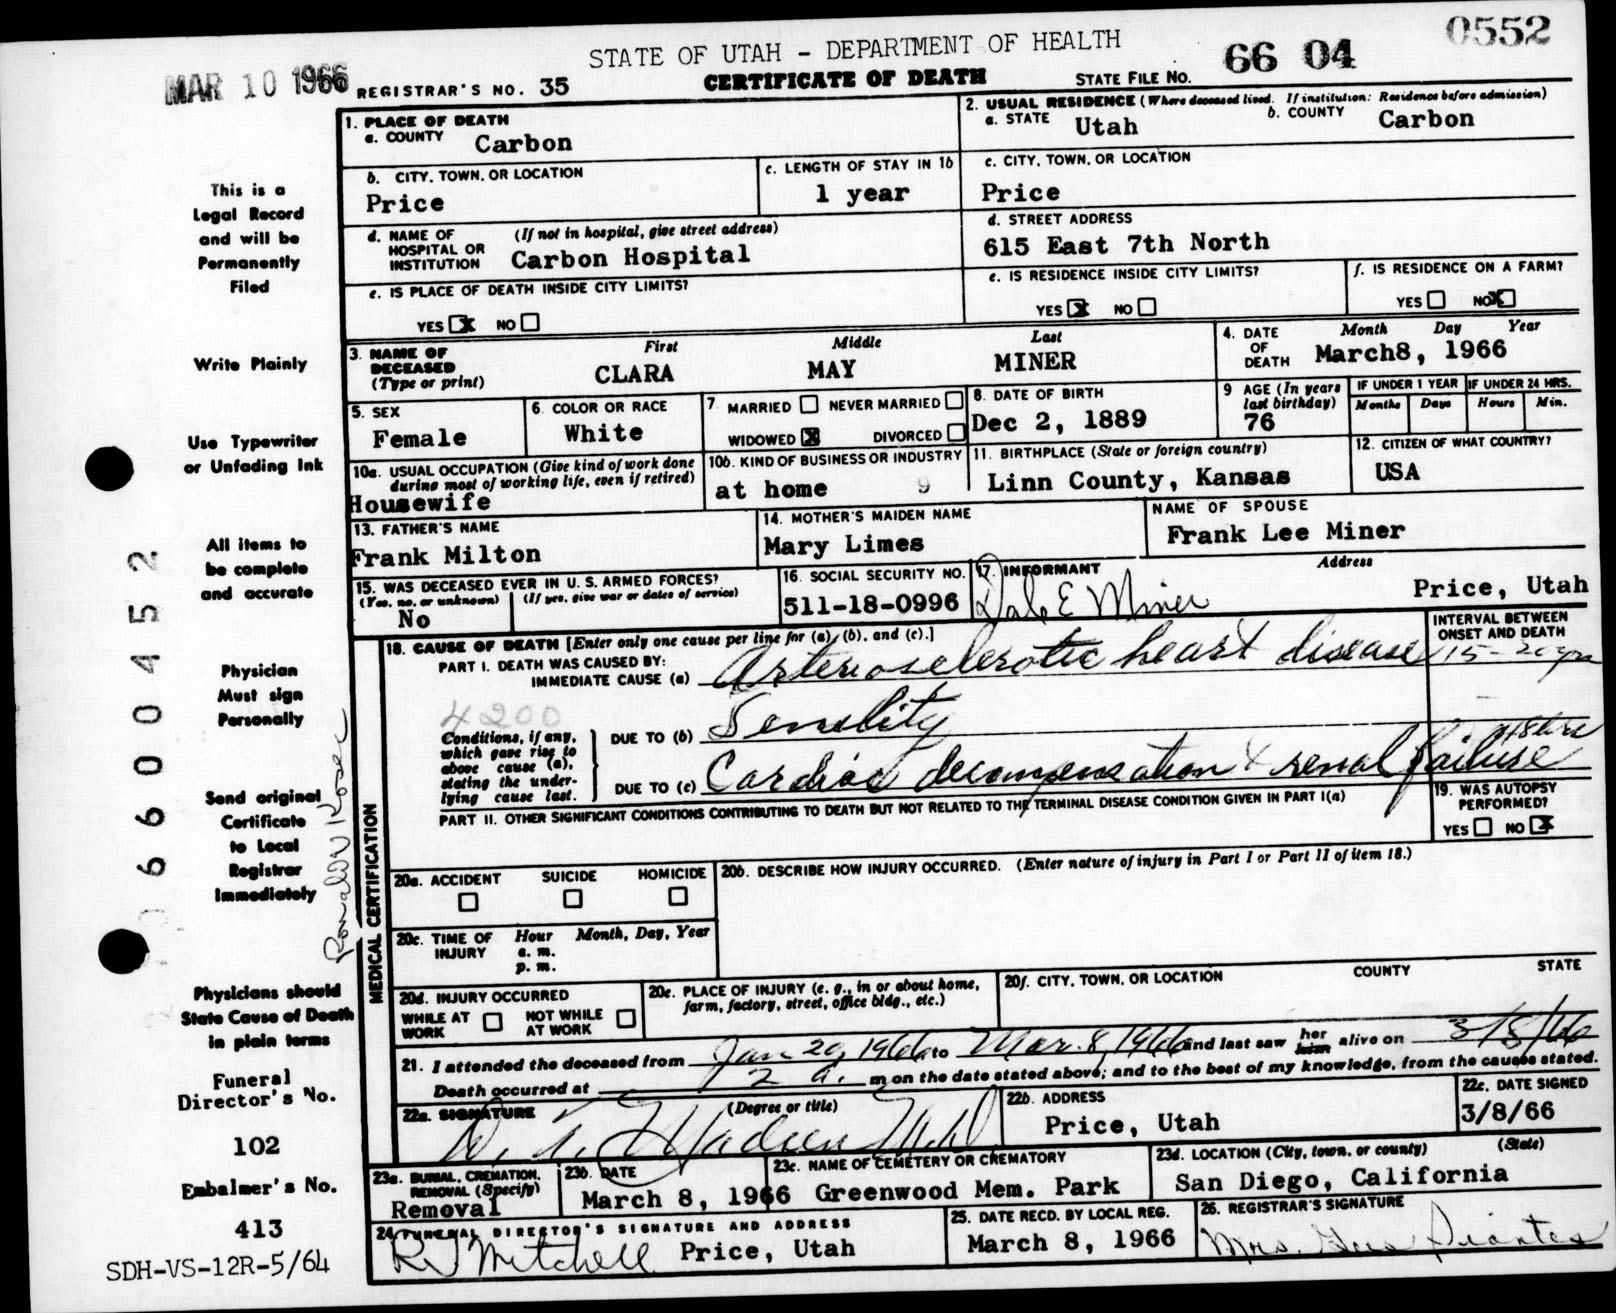 0552
STATE OF UTAH - DEPARTMENT OF HEALTH
MAR 10 1966 REGISTRAR'S NO. 35 CERTIFICATE OF DEATH STATE FILE NO. 66 04
1. PLACE OF DEATH
a. COUNTY Carbon
2. USUAL RESIDENCE (Where deceased lived. If institution: Residence before admission)
a. STATE Utah b. COUNTY Carbon
b. CITY, TOWN, OR LOCATION
Price
c. LENGTH OF STAY IN 1b
1 year
c. CITY, TOWN, OR LOCATION
Price
d. NAME OF HOSPITAL OR INSTITUTION (If not in hospital, give street address)
Carbon Hospital
d. STREET ADDRESS
615 East 7th North
e. IS PLACE OF DEATH INSIDE CITY LIMITS?
YES X NO
e. IS RESIDENCE INSIDE CITY LIMITS?
YES X NO
f. IS RESIDENCE ON A FARM?
YES NO X
3. NAME OF DECEASED (Type or print)
First Middle Last
CLARA MAY MINER
4. DATE OF DEATH Month Day Year
March8, 1966
5. SEX
Female
6. COLOR OR RACE
White
7 MARRIED NEVER MARRIED
WIDOWED X DIVORCED
8. DATE OF BIRTH
Dec 2, 1889
9 AGE (In years last birthday)
76
IF UNDER 1 YEAR IF UNDER 24 HRS.
Months Days Hours Min.
10a. USUAL OCCUPATION (Give kind of work done during most of working life, even if retired)
Housewife
10b. KIND OF BUSINESS OR INDUSTRY
at home 9
11. BIRTHPLACE (State or foreign country)
Linn County, Kansas
12. CITIZEN OF WHAT COUNTRY?
USA
13. FATHER'S NAME
Frank Milton
14. MOTHER'S MAIDEN NAME
Mary Limes
NAME OF SPOUSE
Frank Lee Miner
15. WAS DECEASED EVER IN U. S. ARMED FORCES?
(Yes, no, or unknown) (If yes, give war or dates of service)
No
16. SOCIAL SECURITY NO.
511-18-0996
17. INFORMANT Address
Dale E Miner Price, Utah
MEDICAL CERTIFICATION
18. CAUSE OF DEATH [Enter only one cause per line for (a), (b), and (c).]
INTERVAL BETWEEN ONSET AND DEATH
PART I. DEATH WAS CAUSED BY:
IMMEDIATE CAUSE (a) Arteriosclerotic heart disease 15-20 yrs
4200
Conditions, if any, which gave rise to above cause (a), stating the underlying cause last.
DUE TO (b) Senility
DUE TO (c) Cardiac decompensation & renal failure 48 hrs
PART II. OTHER SIGNIFICANT CONDITIONS CONTRIBUTING TO DEATH BUT NOT RELATED TO THE TERMINAL DISEASE CONDITION GIVEN IN PART I(a)
19. WAS AUTOPSY PERFORMED?
YES NO X
20a. ACCIDENT SUICIDE HOMICIDE
20b. DESCRIBE HOW INJURY OCCURRED. (Enter nature of injury in Part I or Part II of item 18.)
20c. TIME OF INJURY Hour Month, Day, Year
a. m.
p. m.
20d. INJURY OCCURRED
WHILE AT WORK NOT WHILE AT WORK
20e. PLACE OF INJURY (e. g., in or about home, farm, factory, street, office bldg., etc.)
20f. CITY, TOWN, OR LOCATION COUNTY STATE
21. I attended the deceased from Jan 29, 1966 to Mar. 8, 1966 and last saw her him alive on 3/8/66
Death occurred at 2 a. m on the date stated above; and to the best of my knowledge, from the causes stated.
22a. SIGNATURE (Degree or title)
22b. ADDRESS
Price, Utah
22c. DATE SIGNED
3/8/66
23a. BURIAL, CREMATION, REMOVAL (Specify)
Removal
23b. DATE
March 8, 1966
23c. NAME OF CEMETERY OR CREMATORY
Greenwood Mem. Park
23d. LOCATION (City, town, or county) (State)
San Diego, California
24. FUNERAL DIRECTOR'S SIGNATURE AND ADDRESS
R J Mitchell Price, Utah
25. DATE RECD. BY LOCAL REG.
March 8, 1966
26. REGISTRAR'S SIGNATURE
Mrs.
This is a
Legal Record
and will be
Permanently
Filed
Write Plainly
Use Typewriter
or Unfading Ink
All items to
be complete
and accurate
Physician
Must sign
Personally
Send original
Certificate
to Local
Registrar
Immediately
Physicians should
State Cause of Death
in plain terms
Funeral
Director's No.
102
Embalmer's No.
413
SDH-VS-12R-5/64
6600452